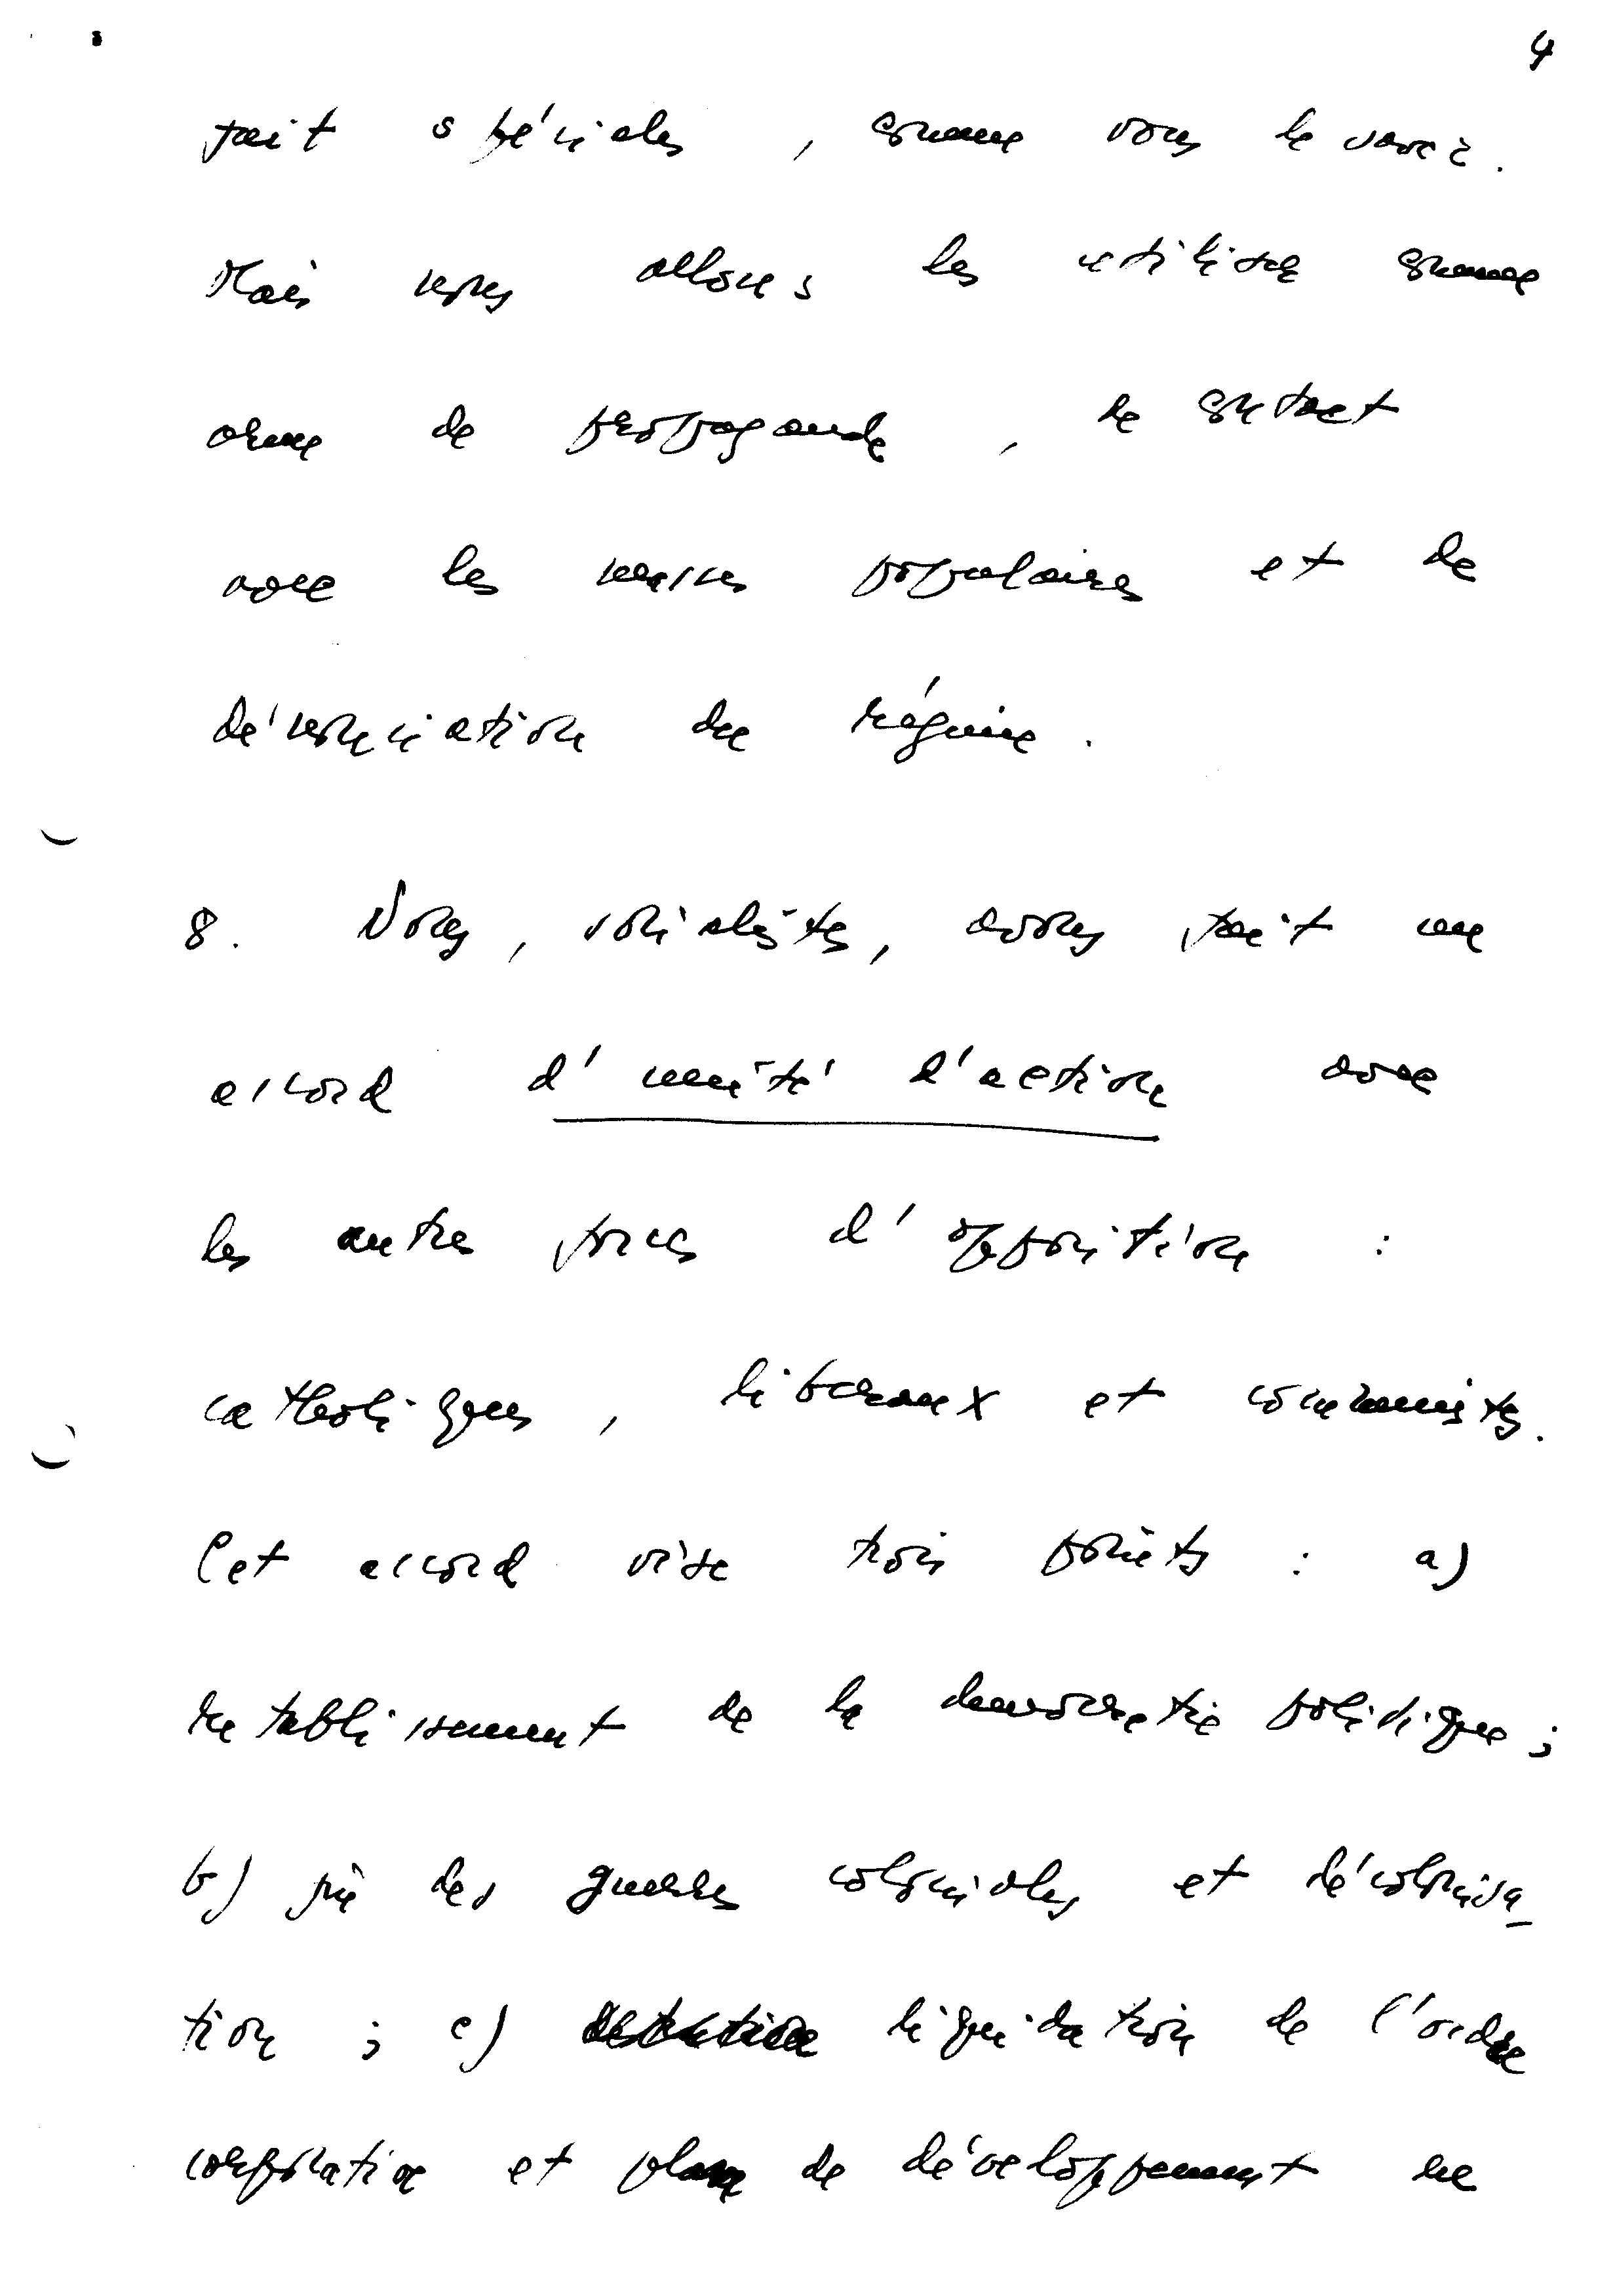 4
fait spéciales, comme vous le savez.
Mais nous allons les utiliser comme
arme de propagande, de contact
avec les masses populaires et de
dénonciation du régime.
8. Nous, socialistes, avons fait un
accord d'unité d'action avec
les autres forces d'opposition :
catholiques, liberaux et communistes.
Cet accord vise trois points : a)
retablissement de la democratie politique ;
b) fin des guerres coloniales et décolonisa-
tion ; c) liquidation de l'ordre
corporative et plan de développement